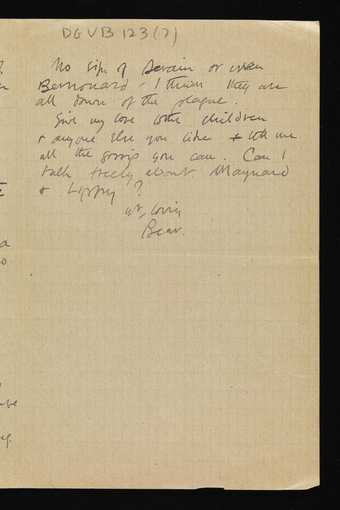 DGVB 123(7)
No sign of Derain or even
Bernouard - I think they are
all down of the plague.
Give my love to the children
& anyone else you like & tell me
all the gossip you can. Can I
talk freely about Maynard
& Loppy?
yr loving
Bear.